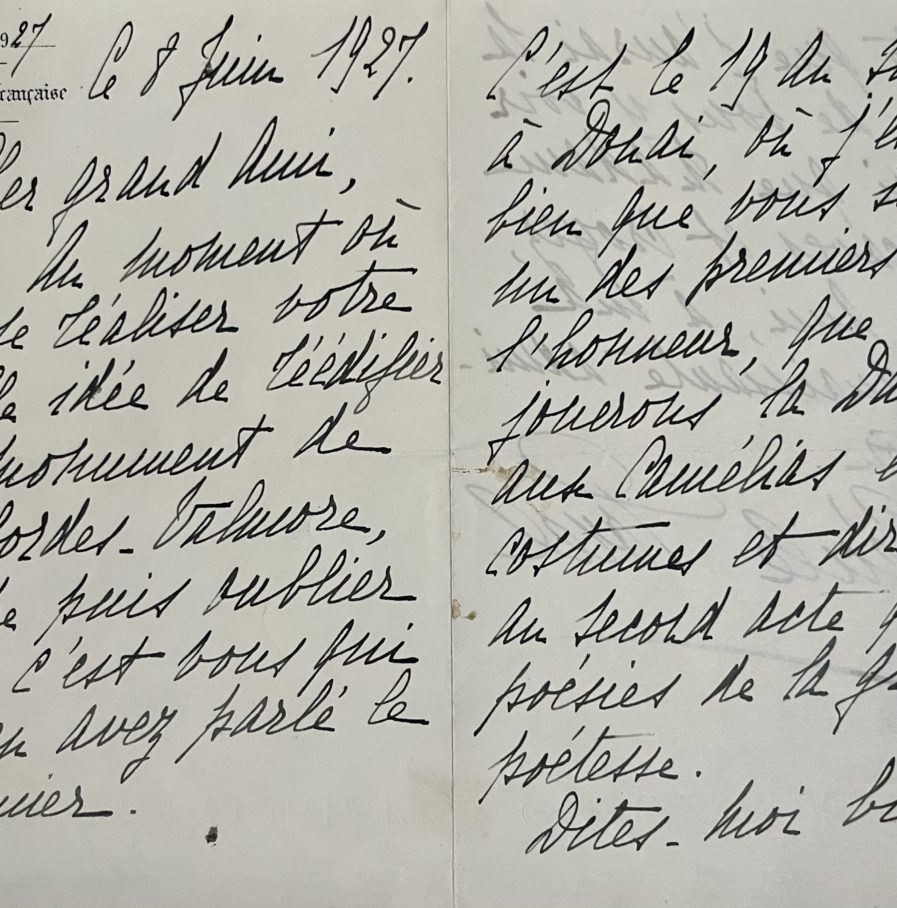 927
Française
Ce 8 Juin 1927.
er grand Ami,
Au moment où
réaliser votre
idée de réédifier
monument de
ordes-Valmore,
puis oublier
c'est vous qui
avez parlé le
mier.
C'est le 19 au
à Douai, où j'
bien que vous
un des premiers
l'honneur, que
jouerons la
aux Camélias
costumes et
au second acte
poésies de la
poétesse.
Dites-moi